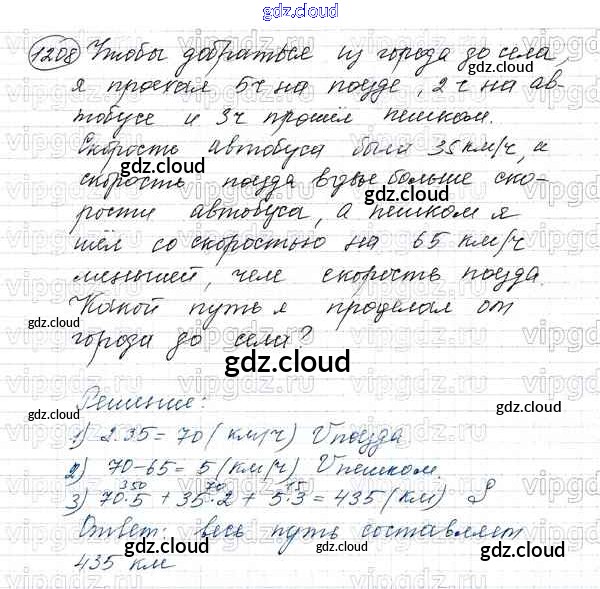 gdz.cloud
1208 Чтобы добраться из города до села,
я проехал 5ч на поезде, 2 ч на ав-
тобусе и 3ч прошёл пешком.
Скорость автобуса была 35 км/ч, а
скорость поезда вдвое больше ско-
рости автобуса, а пешком я
шёл со скоростью на 65 км/ч
меньшей, чем скорость поезда.
Какой путь я проделал от
города до села?
gdz.cloud
Решение:
1) 2·35 = 70 (км/ч) Vпоезда
2) 70-65 = 5 (км/ч) Vпешком
350 70 15
3) 70·5 + 35·2 + 5·3 = 435 (км) S
Ответ: весь путь составляет
435 км